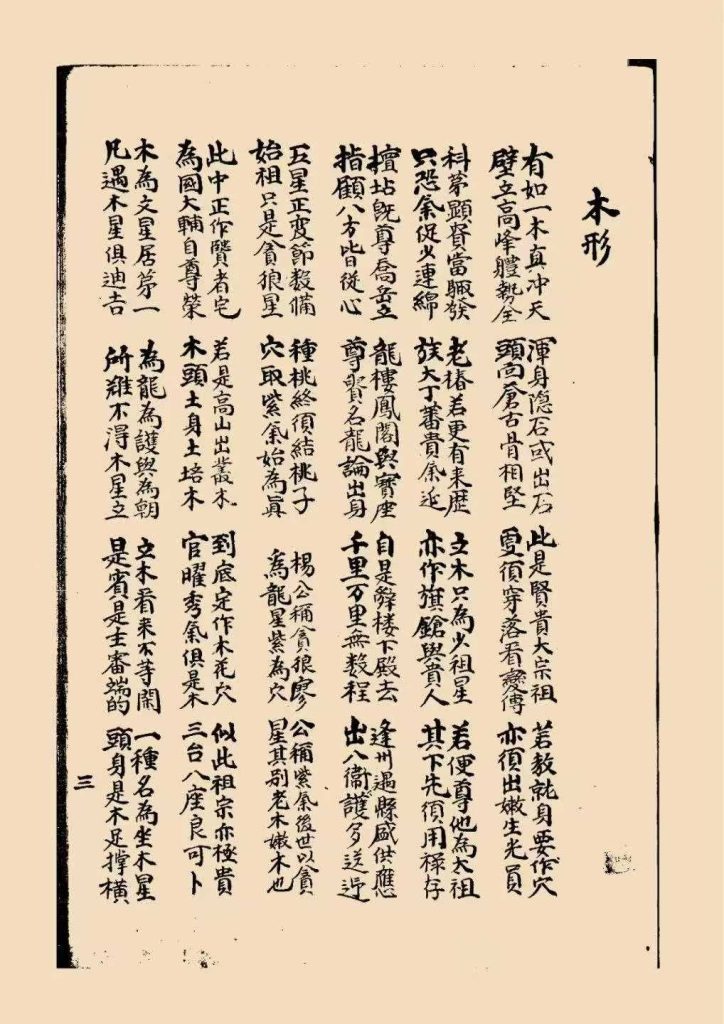 木形
有如一木真冲天
壁立高峰體勢全
渾身隐石或出石
頭高倉古骨相堅
此是賢貴大宗祖
更須穿落看变傳
若教就身要作穴
亦須出嫩生光員
科苐顕贤當輙發
只恐氣促少連綿
老椿若更有来歷
族大丁蕃貴氣延
立木只為少祖星
亦作旗鎗與貴人
若便尊他為太祖
其下先須用禄存
坫既尊喬岳立
指顧八方皆從心
龍樓鳳閣與寶座
尊贤名龍論出身
自是辞楼下殿去
千里万里無数程
逢州遇縣盛供應
出入衛護多送迎
五星正变節数俻
始祖只是貪狼星
種桃終須結桃子
穴取紫氣始為真
楊公稱貪狼廖公稱紫氣後世以貪
為龍星紫為穴星其别老木嫩木也
此中正作贤者宅
為國大輔自尊榮
若是高山出叢木
木頭土身土培木
到底定作木花穴
官曜秀氣俱是木
似此祖宗亦極貴
三台八座良可卜
木為文星居第一
凡遇木星俱迪吉
為龍為護與為朝
所難不得木星立
立木看来不等閒
是賓是主審端的
一種名為坐木星
頭身是木足撑横
三